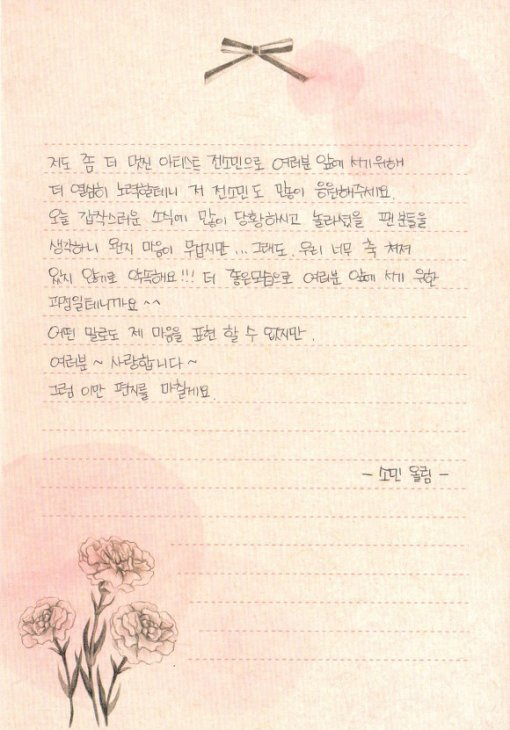 저도 좀 더 멋진 아티스트 전소민으로 여러분 앞에 서기위해
더 열심히 노력할테니 저 전소민도 많이 응원해주세요.
오늘 갑작스러운 소식에 많이 당황하시고 놀라셨을 팬분들을
생각하니 왠지 마음이 무겁지만... 그래도. 우리 너무 축 쳐져
있지 않기로 약속해요!!! 더 좋은모습으로 여러분 앞에 서기 위한
과정일테니까요^^
어떤 말로도 제 마음을 표현 할 수 없지만.
여러분~ 사랑합니다~
그럼 이만 편지를 마칠게요.
- 소민 올림 -